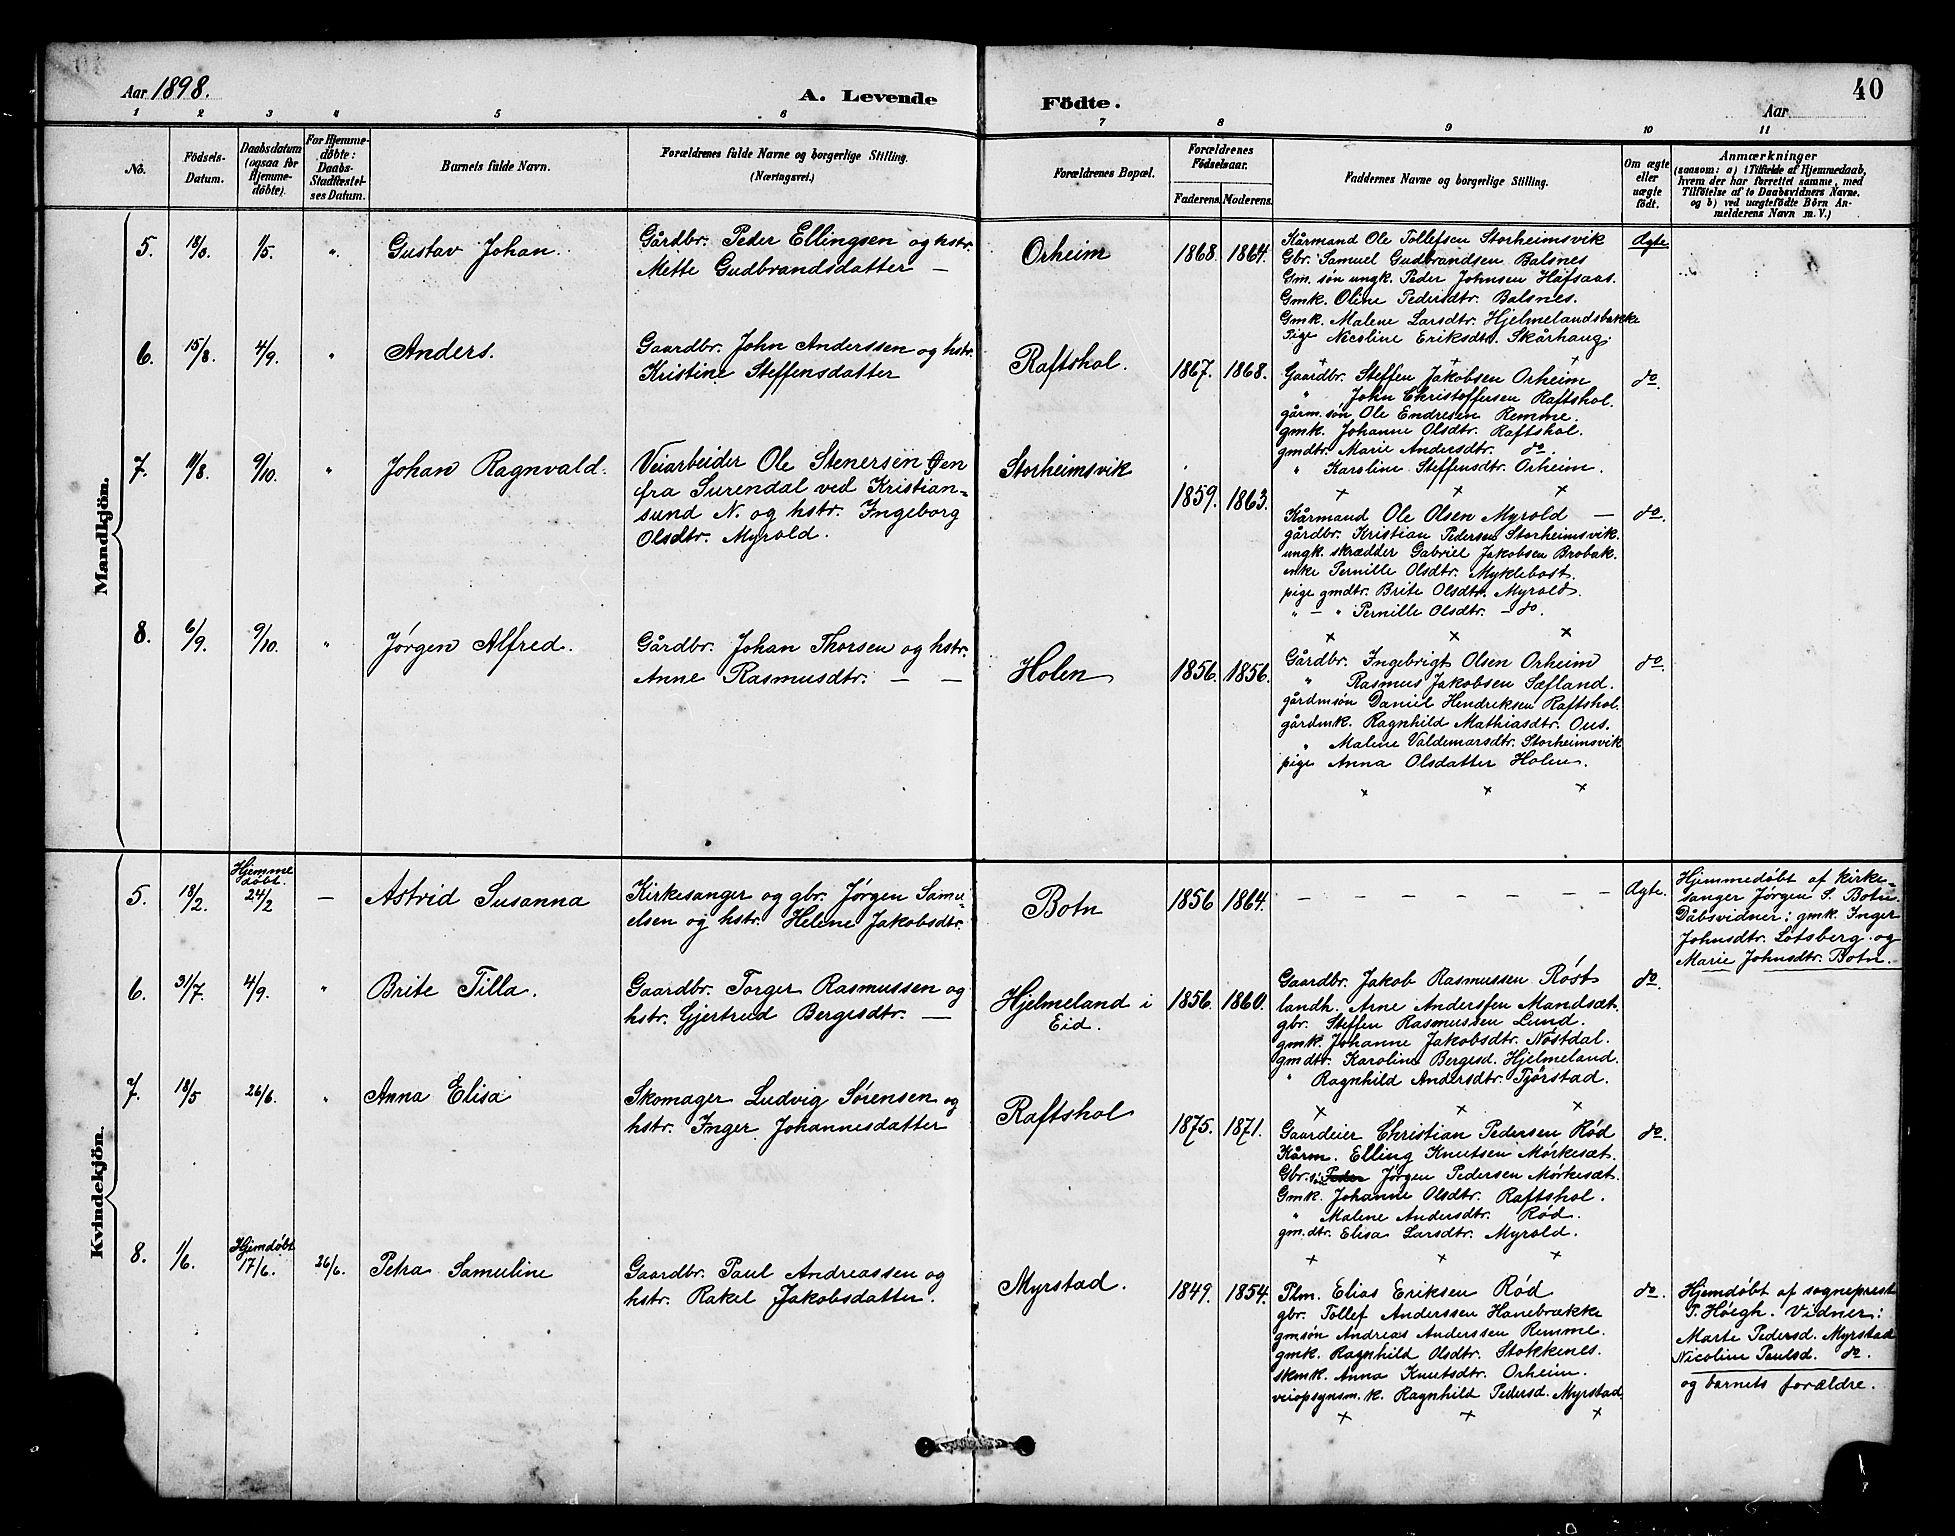 40
Aar 1898.
A. Levende Födte.
Aar
1 2 3 4 5 6 7 8 9 10 11
No.
Födsels-
Datum.
Daabsdatum
(ogsaa for
Hjemme-
döbte).
For Hjemme-
döbte:
Daabs-
Stadfæstel-
ses Datum.
Barnets fulde Navn.
Forældrenes fulde Navne og borgerlige Stilling.
(Næringsvei.)
Forældrenes Bopæl.
Forældrenes
Födselsaar.
Faderens. Moderens.
Faddernes Navne og borgerlige Stilling.
Om ægte
eller
uægte
födt.
Anmærkninger
(saasom: a) i Tilfælde af Hjemmedaab,
hvem der har forrettet samme, med
Tilföielse af to Daabsvidners Navne,
og b) ved uægtefödte Börn An-
melderens Navn m. V.)
Mandkjön.
5. 18/3. 1/5. ". Gustav Johan.
Gårdbr. Peder Ellingsen og hstr.
Mette Gudbrandsdatter —
Orheim 1868. 1864.
Kårmand Ole Tollefsen Storheimsvik
Gbr. Samuel Gudbrandsen Balsnes
Gm. søn ungk. Peder Johnsen Hafsaas.
Gmk. Oline Pedersdtr. Balsnes.
Gmk. Malene Larsdtr. Hjelmelandsbakke
Pige Nicoline Eriksdtr. Skårhaug.
x x x
Ægte
6. 15/8. 4/9. " Anders.
Gaardbr. John Anderssen og hstr.
Kristine Steffensdatter
Raftshol. 1867. 1868.
Gaardbr. Steffen Jakobsen Orheim
" John Christoffersen Raftshol.
gårm. søn Ole Endresen Remme.
gmk. Johanne Olsdtr. Raftshol.
gmdtr. Marie Andersdtr. do.
" Karoline Steffensdtr. Orheim.
x x x
do.
7. 11/8. 9/10. " Johan Ragnvald.
Veiarbeider Ole Stenersen Øen
fra Surendal ved Kristian=
sund N. og hstr. Ingeborg
Olsdtr. Myrold.
Storheimsvik
1859. 1863.
Kårmand Ole Olsen Myrold —
gårdbr. Kristian Pedersen Storheimsvik.
ungk. skrædder Gabriel Jakobsen Brobak.
enke Pernille Olsdtr. Myklebost.
pige gmdtr. Brite Olsdtr. Myrold
" — " Pernille Olsdtr. — do.
x x x
do.
8. 6/9. 9/10. " Jørgen Alfred.
Gårdbr. Johan Thorsen og hstr.
Anne Rasmusdtr. — —
Holen 1856. 1856.
Gårdbr. Ingebrigt Olsen Orheim
" Rasmus Jakobsen Sæfland.
gårdmsøn Daniel Hendriksen Raftshol.
gårdmk. Ragnhild Mathiasdtr. Ous.
" Malene Valdemarsdtr. Storheimsvik
pige Anna Olsdatter Holen.
x x x
do.
Kvindekjön.
5. 18/2. Hjemme
døbt.
24/2 — Astrid Susanna
Kirkesanger og gbr. Jørgen Samu-
elsen og hstr. Helene Jakobsdtr.
Botn 1856 1864.
— — — — — — — —
Ægte.
Hjemmedøbt af kirke-
sanger Jørgen S. Botn.
Dåbsvidner: gmk. Inger
Johnsdtr. Lotsberg og
Marie Johnsdtr. Botn.
6. 31/7. 4/9. " Brite Tilla.
Gaardbr. Torger Rasmussen og
hstr. Gjertrud Bergesdtr. —
Hjelmeland i
Eid.
1856. 1860.
Gaardbr. Jakob Rasmussen Røst
landh. Arne Andersen Mandsæt.
gbr. Steffen Rasmussen Lund.
gmk. Johanne Jakobsdtr. Nøstdal.
gmdtr. Karoline Bergesd. Hjelmeland.
" Ragnhild Andersdtr. Tjørstad.
x x x
do.
7. 18/5 26/6. " Anna Elisa
Skomager Ludvig Sørensen og
hstr. Inger Johannesdatter
Raftshol 1875. 1871.
Gaardeier Christian Pedersen Rød
Kårm. Elling Knutsen Mørkesæt.
Gbr. s. Peder Jørgen Pedersen Mørkesæt.
Gmk. Johanne Olsdtr. Raftshol.
" Malene Andersdtr. Rød.
gm.dtr. Elisa Larsdtr. Myrold.
x x x
do.
8. 1/6. Hjemdøbt
17/6. 26/6. Petra Samuline
Gaardbr. Paul Andreassen og
hstr. Rakel Jakobsdatter.
Myrstad. 1849. 1854.
Plm. Elias Eriksen Rød
gbr. Tollef Anderssen Hanebrække
gmsøn Andreas Anderssen Remme.
gmk. Ragnhild Olsdtr. Stokkenes.
skmk. Anna Knutsdtr. Orheim.
veiopsynsm. k. Ragnhild Pedersd. Myrstad
x x x
do.
Hjemdøbt af sogneprest
P. Høegh. Vidner:
Marte Pedersd. Myrstad
Nicoline Paulsd. do.
og barnets forældre.